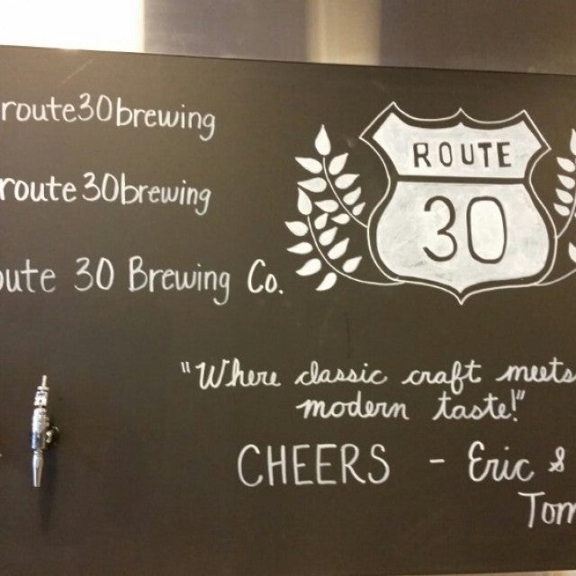 route30brewing
route30brewing
oute 30 Brewing Co.
ROUTE
30
"Where classic craft meets
modern taste!"
CHEERS - Eric &
Tom